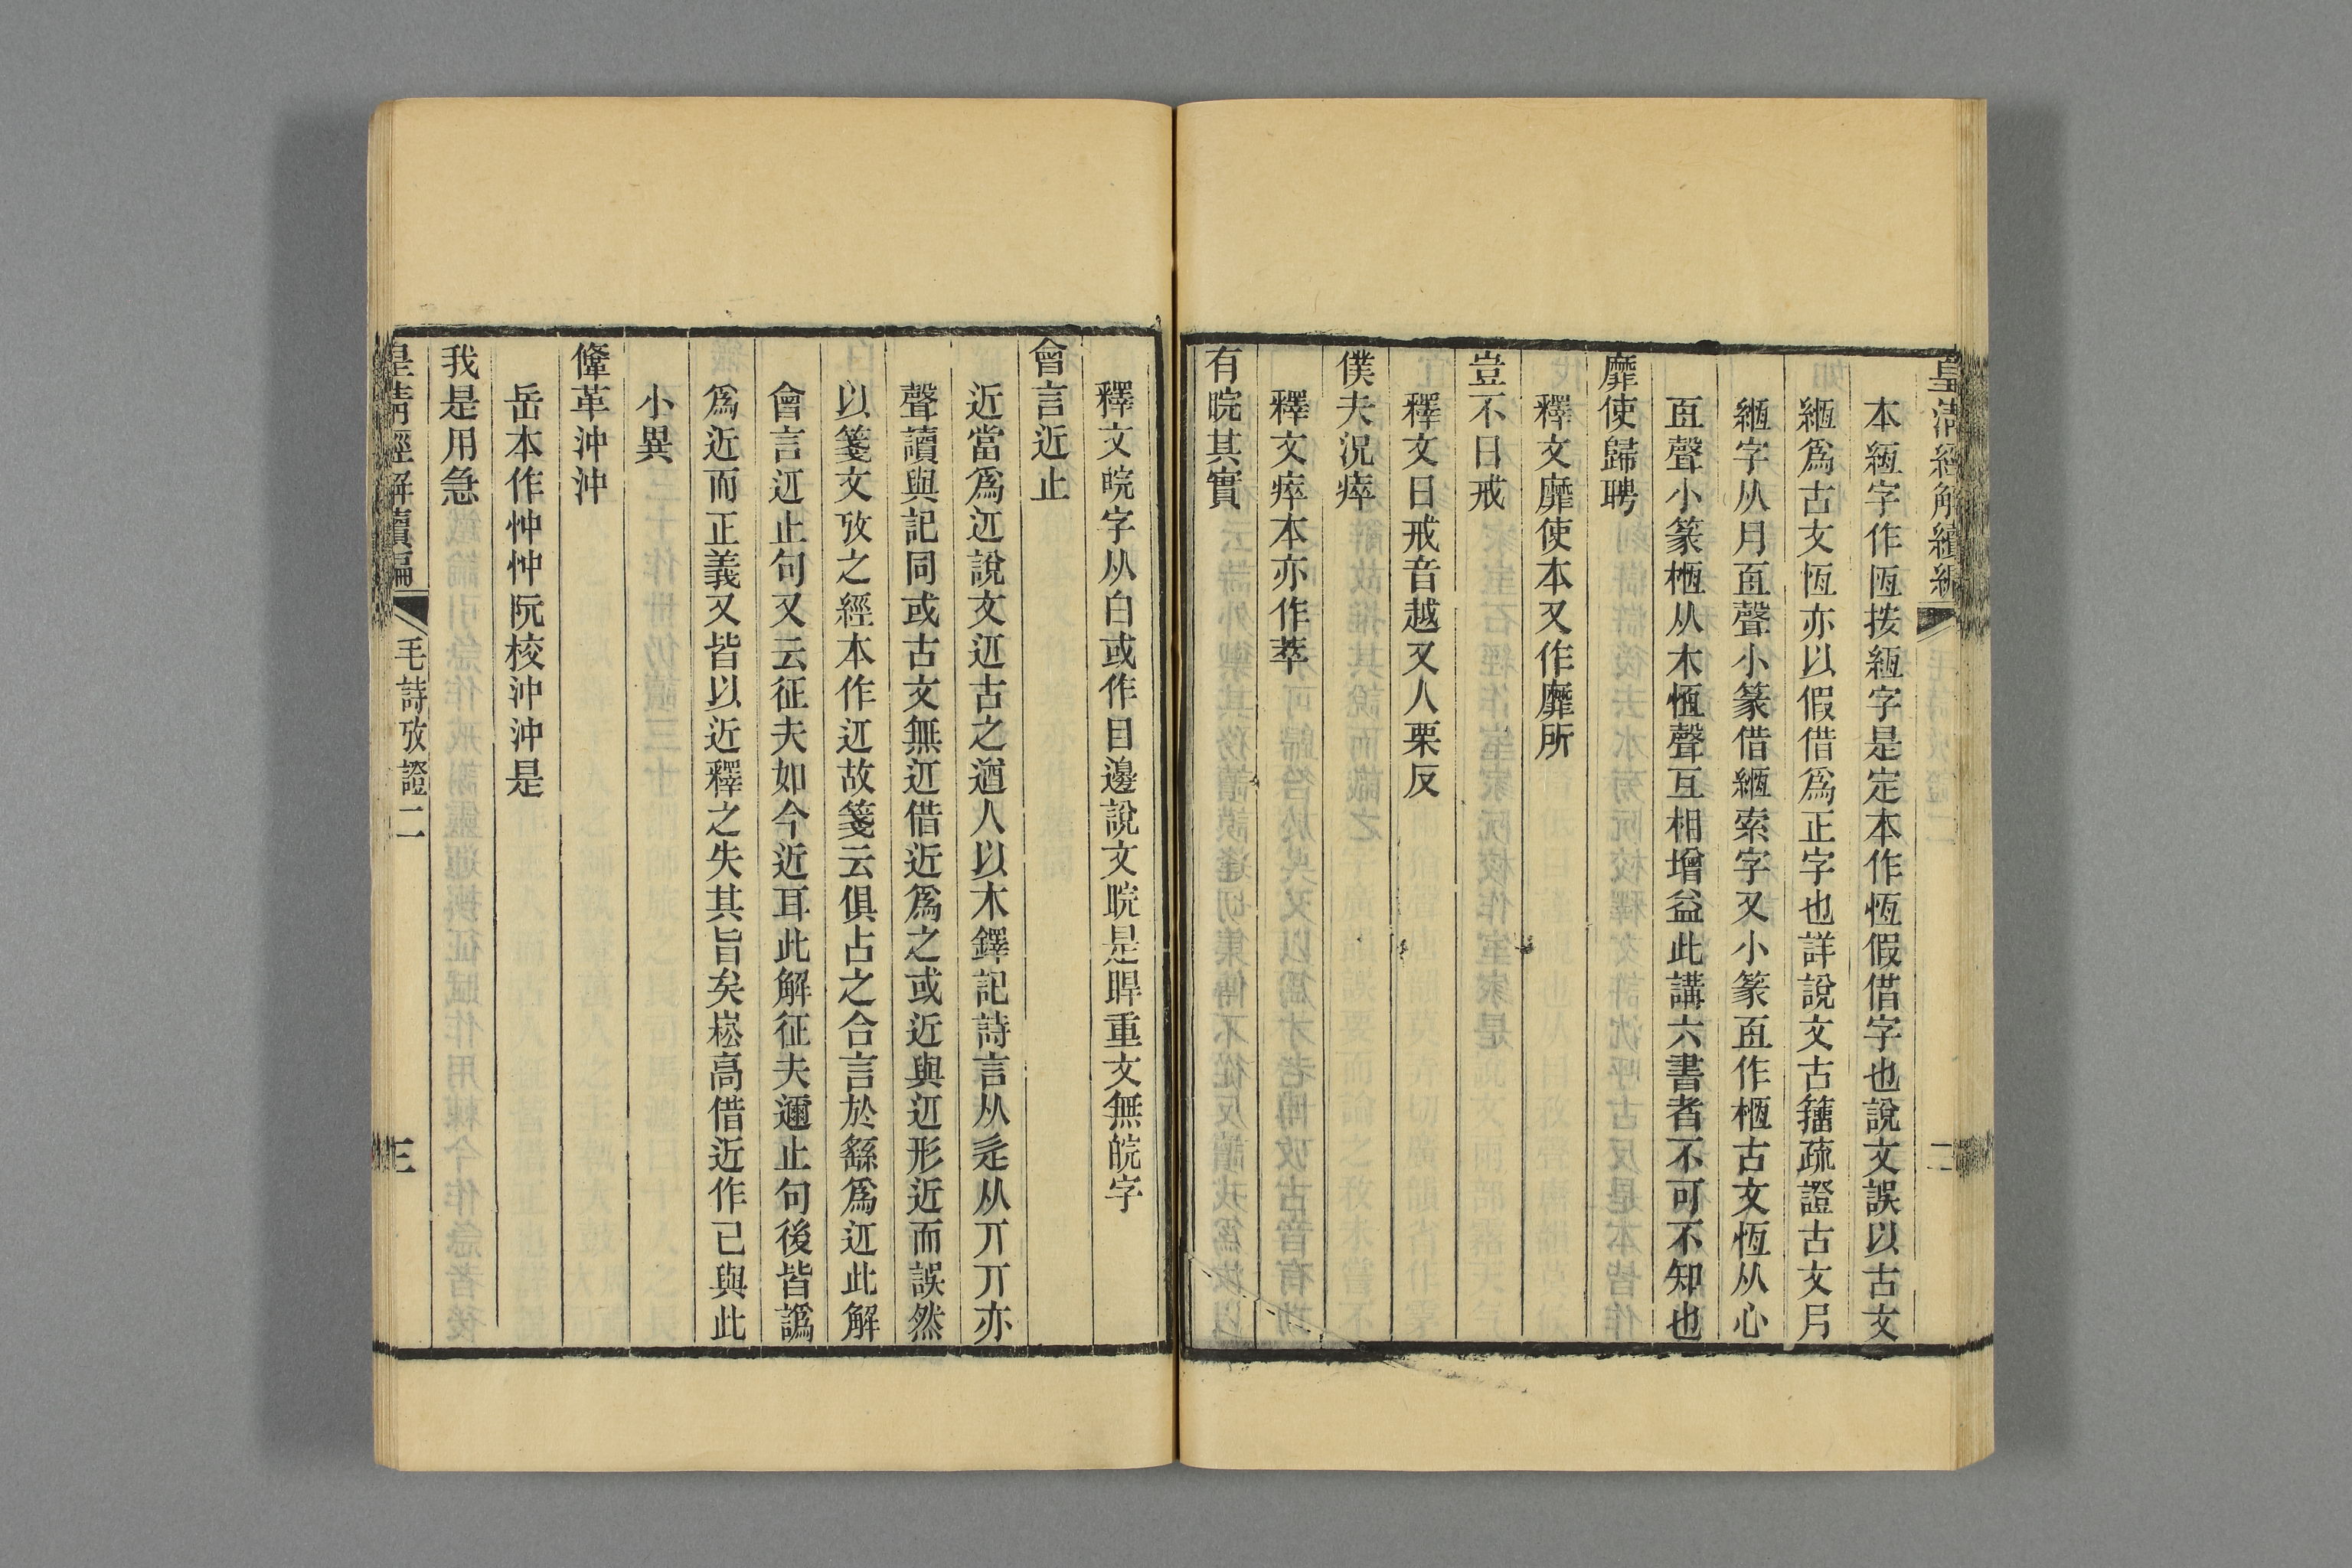 皇清經解續編
二
本緪字作恆按緪字是定本作恆假借字也說文誤以古文
緪爲古文恆亦以假借爲正字也詳說文古籀疏證古文月
緪字从月亙聲小篆借緪索字又小篆亙作極古文恆从心
亙聲小篆極从木恆聲互相增益此講六書者不可不知也
靡使歸聘
釋文靡使本又作靡所
豈不日戒
釋文日戒音越又人栗反
僕夫況瘁
釋文瘁本亦作萃
有睆其實
釋文睆字从白或作目邊說文睆是睅重文無皖字
會言近止
近當爲䢋說文䢋古之遒人以木鐸記詩言从辵从丌丌亦
聲讀與記同或古文無䢋借近爲之或近與䢋形近而誤然
以箋文攷之經本作䢋故箋云俱占之合言於繇爲䢋此解
會言䢋止句又云征夫如今近耳此解征夫邇止句後皆譌
爲近而正義又皆以近釋之失其旨矣崧高借近作已與此
小異
鞗革沖沖
岳本作忡忡阮校沖沖是
我是用急
皇清經解續編
毛詩攷證二
三